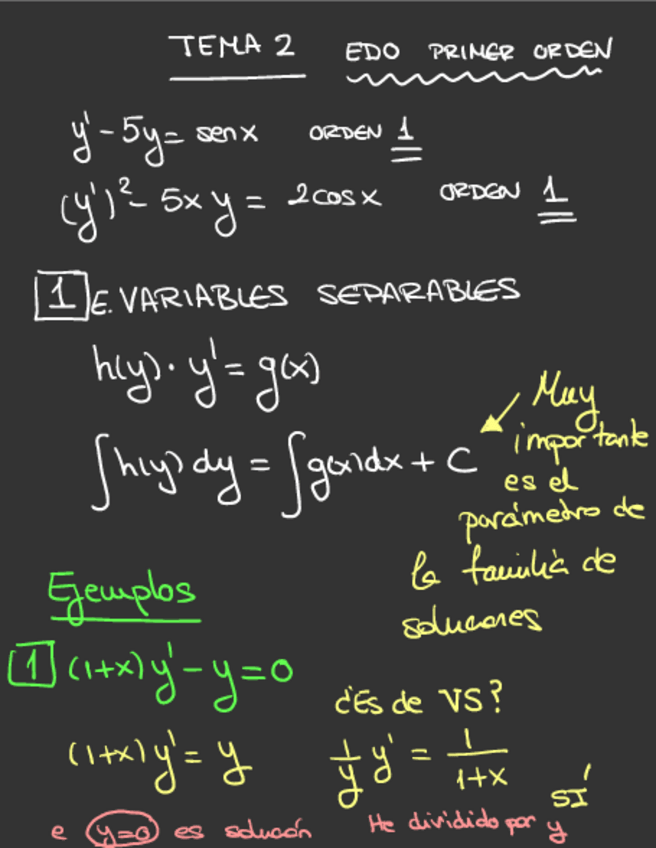 TEMA 2 EDO PRIMER ORDEN
y' - 5y = senx ORDEN 1
(y')² - 5xy = 2cosx ORDEN 1
1 E. VARIABLES SEPARABLES
h(y) · y' = g(x)
∫h(y)dy = ∫g(x)dx + C
Muy
importante
es el
parámetro de
la familia de
soluciones
Ejemplos
1 (1+x)y' - y = 0
¿Es de VS?
(1+x)y' = y 1/y y' = 1/(1+x) SÍ
e y=0 es solución He dividido por y